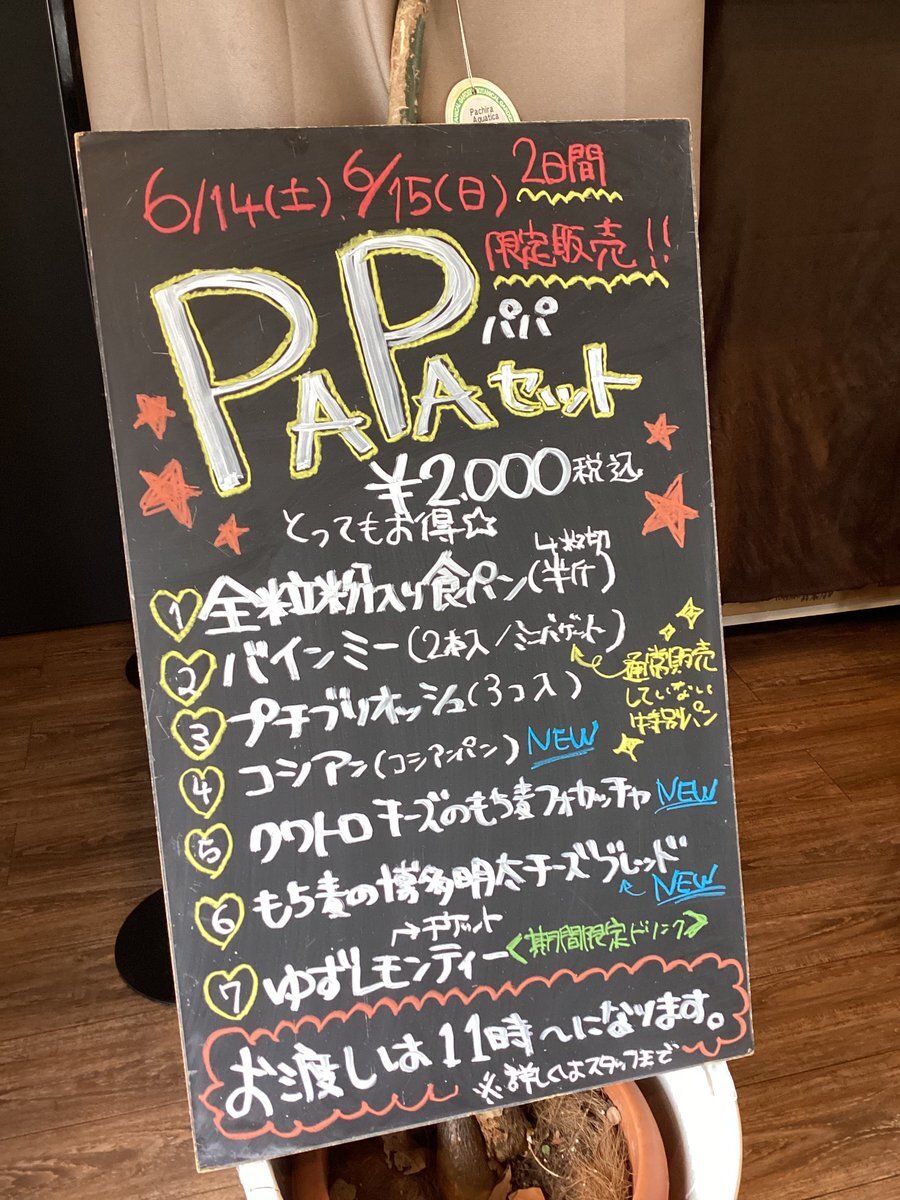 Pachira
Aquatica
6/14(土). 6/15(日) 2日間
限定販売!!
PAPA パパ
セット
¥2,000税込
とってもお得☆
4枚切
① 全粒粉入り食パン(半斤)
② バインミー(2本入/ミニバゲット)
通常販売
していない
特別パン
③ プチブリオッシュ(3コ入)
④ コシアン(コシアンパン) NEW
⑤ クワトロチーズのもち麦フォカッチャ NEW
⑥ もち麦の博多明太チーズブレッド NEW
→チケット
⑦ ゆずレモンティー<期間限定ドリンク>
お渡しは11時〜になります。
※詳しくはスタッフまで